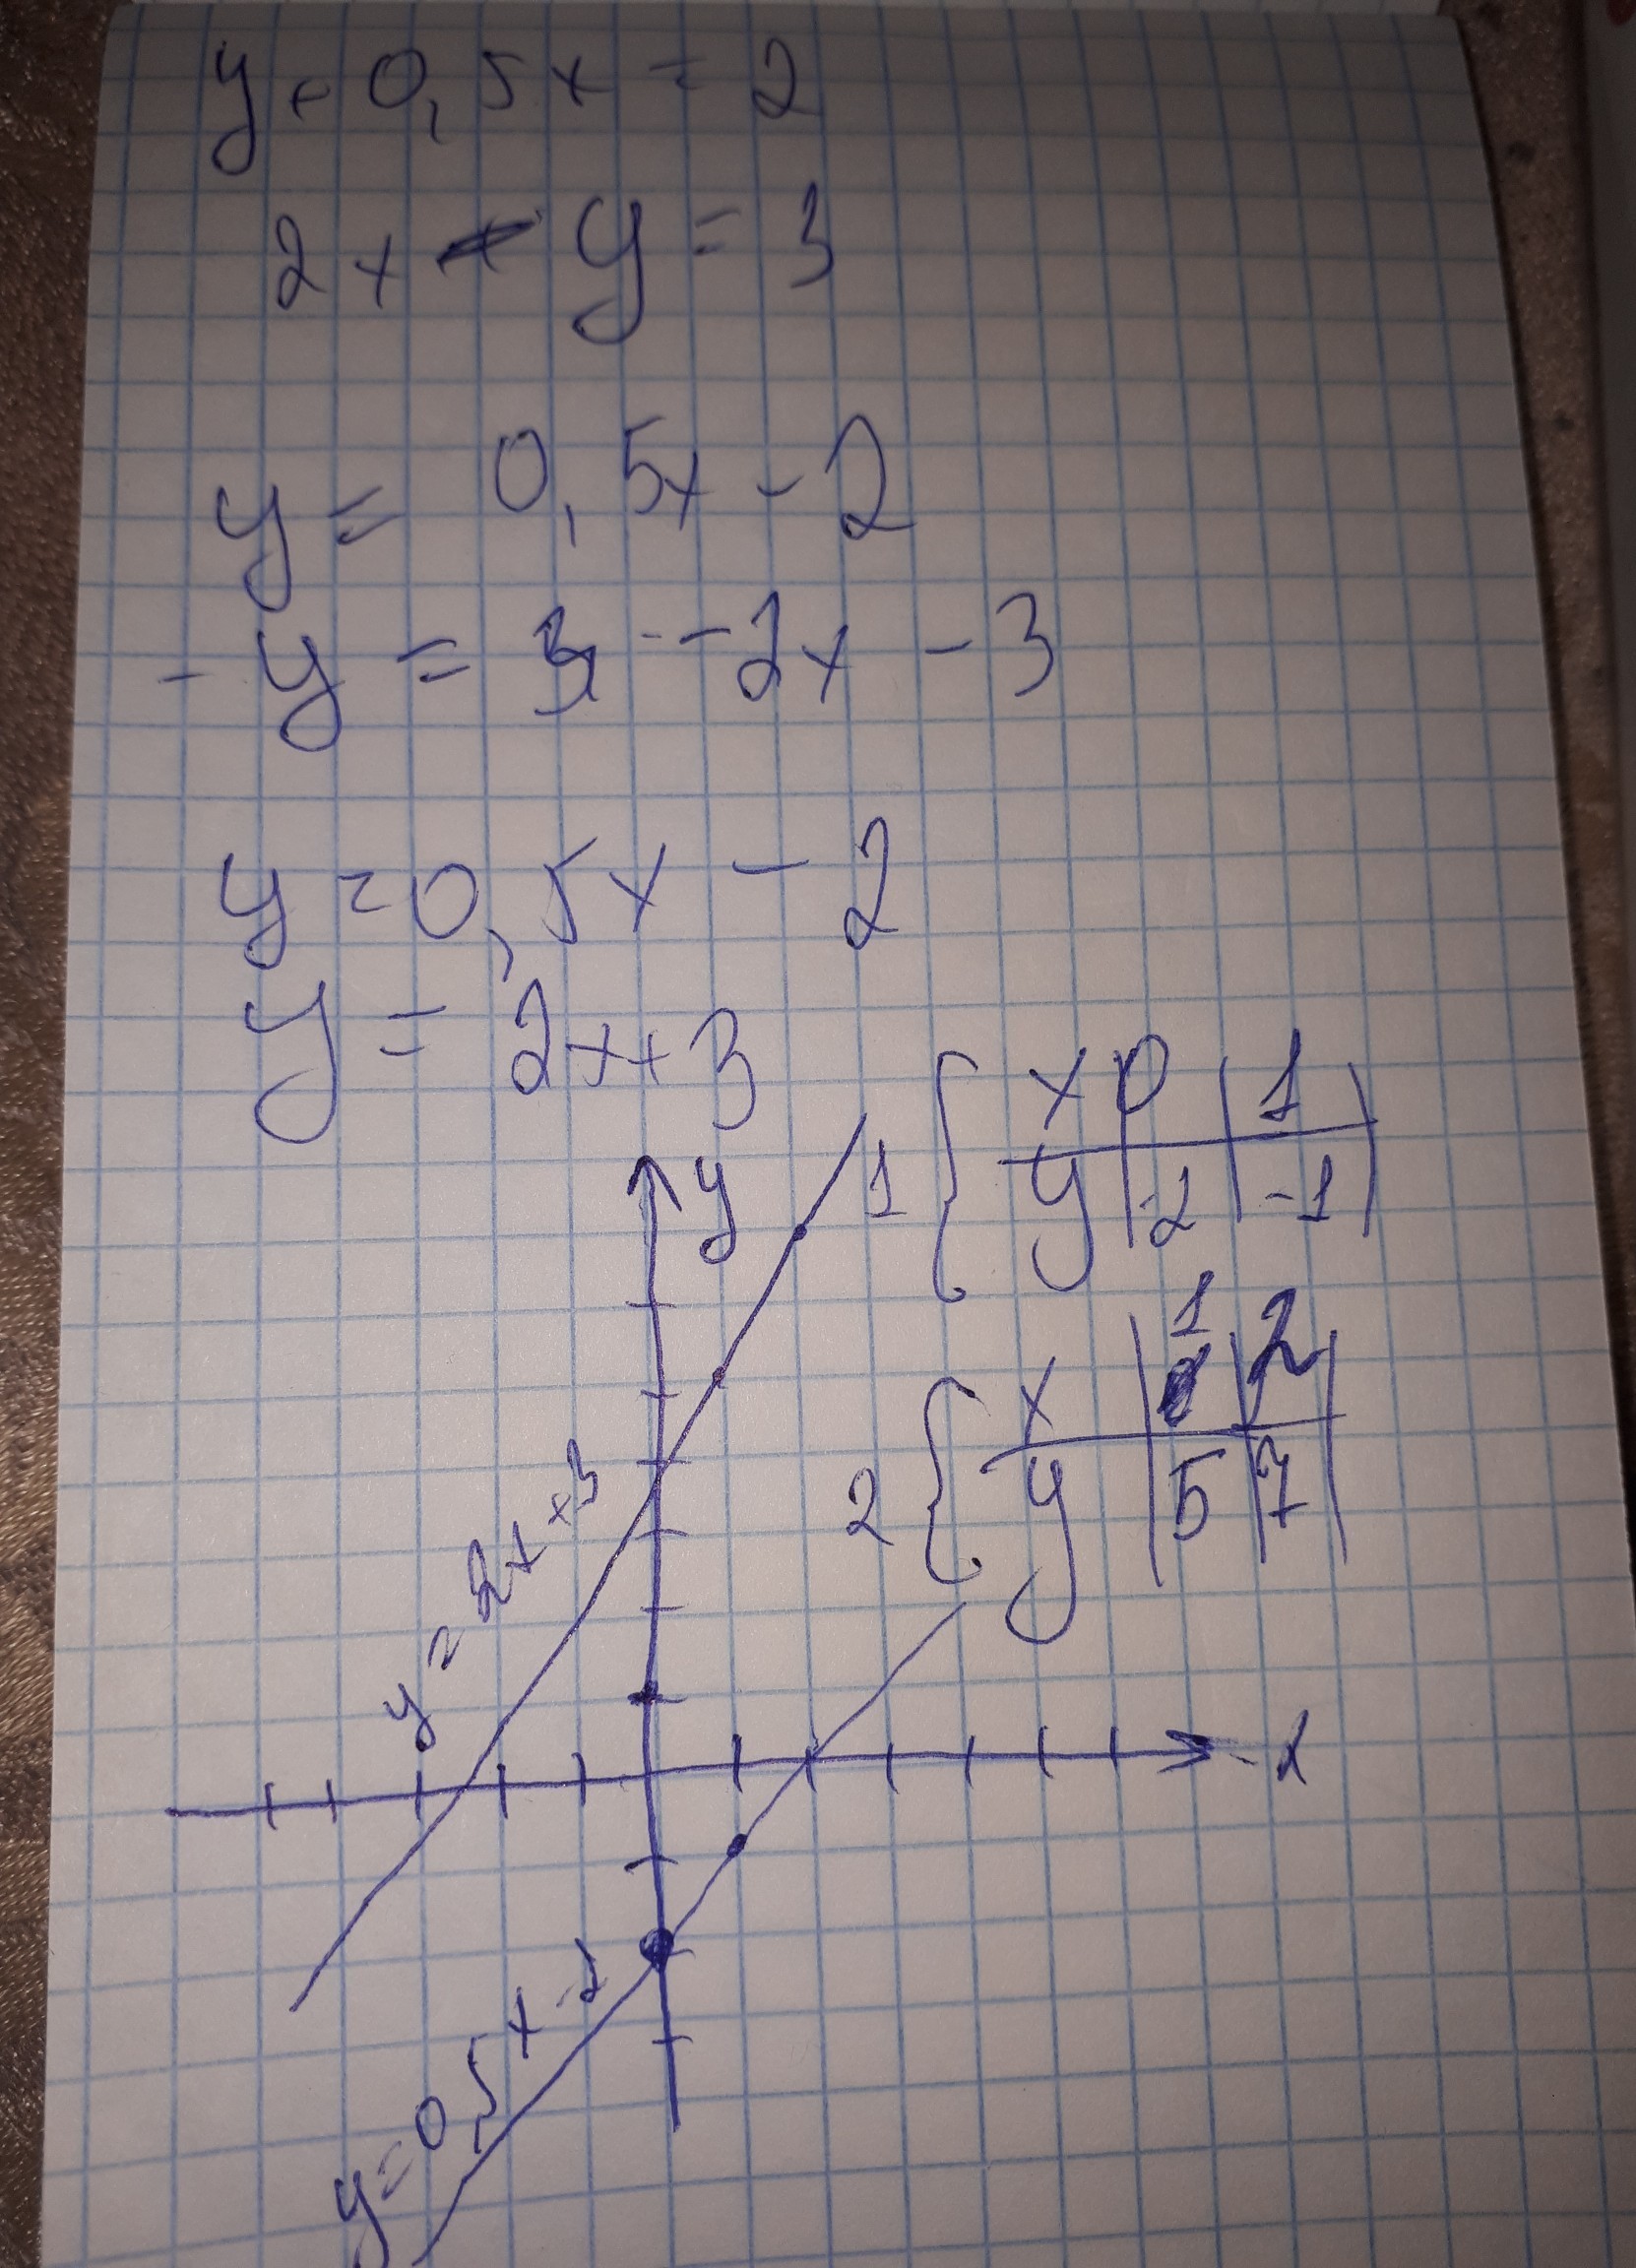 y + 0,5x = 2
2x - y = 3
y = 0,5x - 2
-y = -2x - 3
y = 0,5x - 2
y = 2x+3
y
1 { x | 0 | 1 |
y | -2 | -1 |
2 { x | 1 | 2 |
y | 5 | 7 |
y = 2x+3
y=0,5x-2